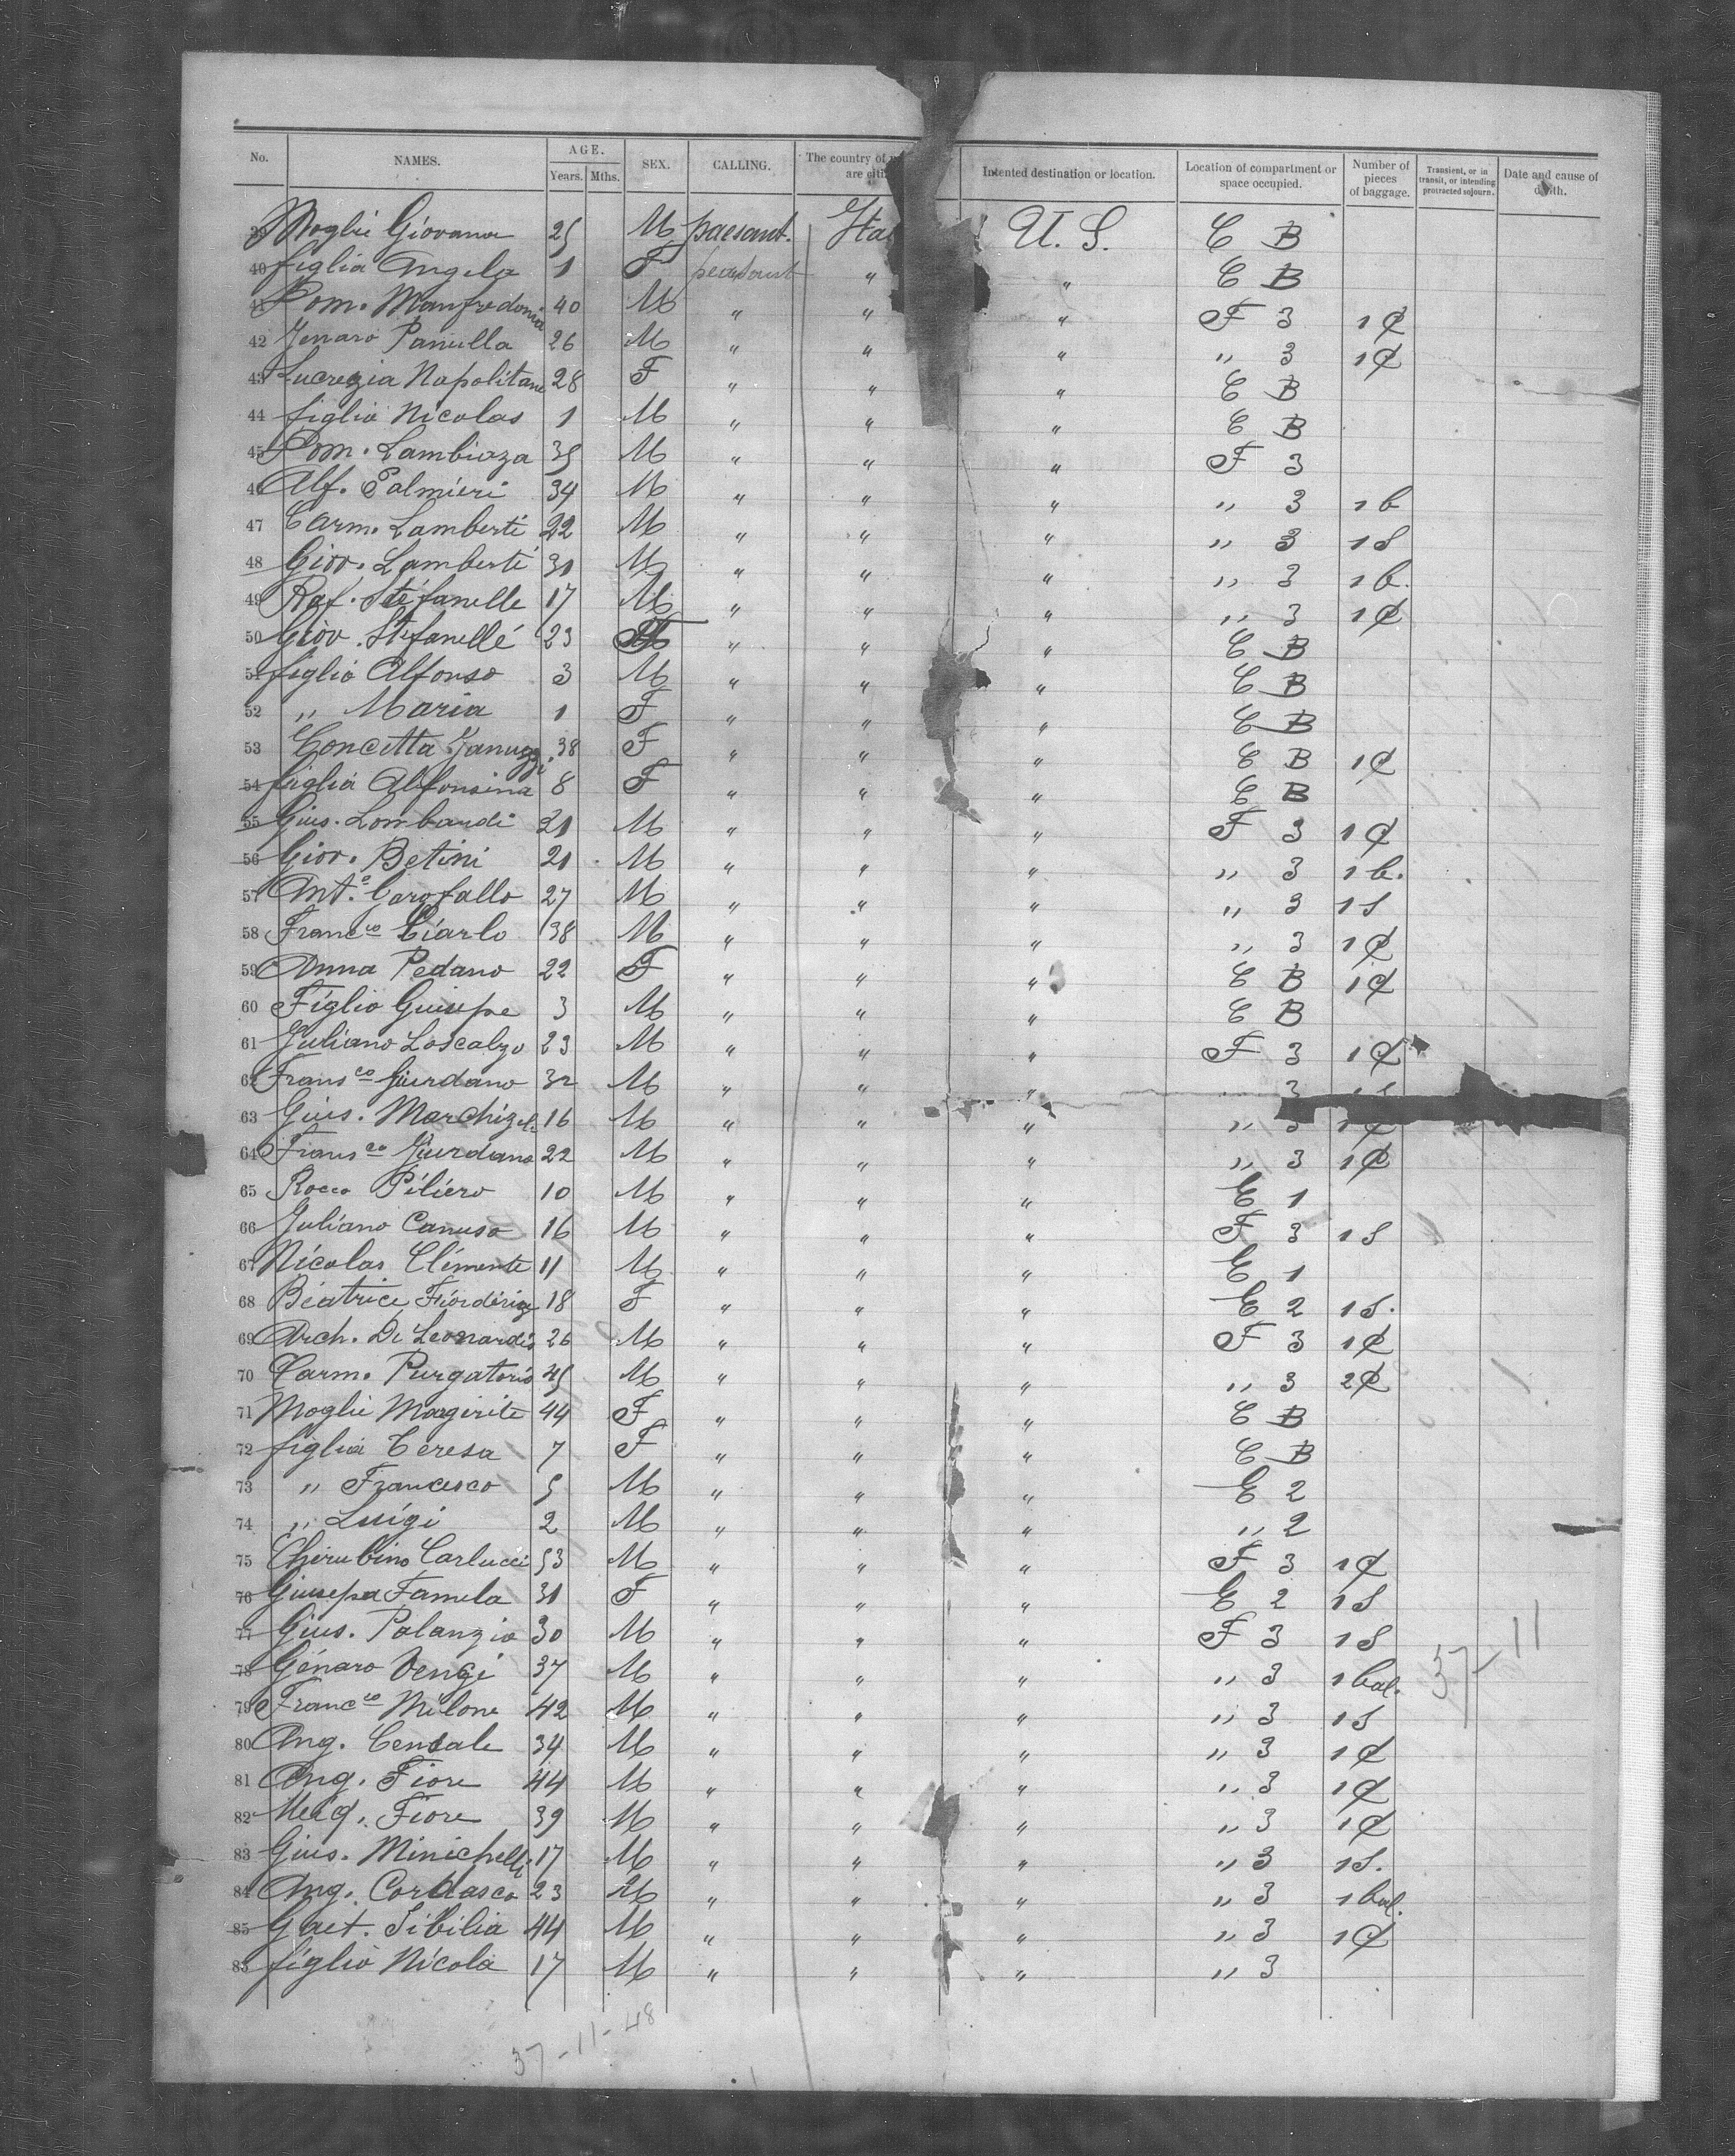 No. NAMES. AGE. Years. Mths. SEX. CALLING. The country of are citi Intented destination or location. Location of compartment or space occupied. Number of pieces of baggage. Transient, or in transit, or intending protracted sojourn. Date and cause of death.
39 Moglie Giovana 25 M paesant. Ita U. S. C B
40 figlia Angela 1 F peasant " " C B
41 Dom. Manfredonia 40 M " " " F 3 1 ₵
42 Jenaro Panulla 26 M " " " " 3 1 ₵
43 Lucrezia Napolitano 28 F " " " C B
44 figlio Nicolas 1 M " " " C B
45 Dom. Lambiaza 35 M " " " F 3
46 Alf. Palmieri 34 M " " " " 3 1 b
47 Carm. Lamberti 22 M " " " " 3 1 S
48 Giov. Lamberti 30 M " " " " 3 1 b.
49 Raf. Stefanelle 17 M " " " " 3 1 ₵
50 Giov. Stefanellé 23 F " " " C B
51 figlio Alfonso 3 M " " " C B
52 " Maria 1 F " " " C B
53 Concetta Januzzi 38 F " " " C B 1 ₵
54 figlia Alfonsina 8 F " " " C B
55 Gius. Lombardi 31 M " " " F 3 1 ₵
56 Giov. Betini 21 M " " " " 3 1 b.
57 Ant.º Garofallo 27 M " " " " 3 1 S
58 Franc.co Ciarlo 38 M " " " " 3 1 ₵
59 Anna Pedano 22 F " " " C B 1 ₵
60 Figlio Guisepe 3 M " " " C B
61 Juliano Loscalzo 23 M " " " F 3 1 ₵
62 Frans.co Giurdano 32 M " " " 3 1 S
63 Gius. Marchizel. 16 M " " " " 3 1 ₵
64 Frans.co Jiurdano 22 M " " " " 3 1 ₵
65 Rocco Piliero 10 M " " " E 1
66 Juliano Canuso 16 M " " " F 3 1 S
67 Nicolas Clémente 11 M " " " E 1
68 Béatrice 18 F " " " E 2 1 S.
69 Arch. De Leonardis 26 M " " " F 3 1 ₵
70 Carm. Purgatorio 45 M " " " " 3 2 ₵
71 Moglie Magirite 44 F " " " C B
72 figlia Teresa 7 F " " " C B
73 " Francesco 5 M " " " E 2
74 " Luigi 2 M " " " " 2
75 Cherubino Carlucci 53 M " " " F 3 1 ₵
76 Giusepa Famela 31 F " " " E 2 1 S
77 Gius. Palanzio 30 M " " " F 3 1 S
78 Génaro Vengi 37 M " " " " 3 1 bal.
79 Franc.co Milone 42 M " " " " 3 1 S
80 Ang. Censale 34 M " " " " 3 1 ₵
81 Ang. Fiore 44 M " " " " 3 1 ₵
82 Fiore 39 M " " " " 3 1 ₵
83 Gius. Minichelli 17 M " " " " 3 1 S.
84 Ang. Cordasco 23 M " " " " 3 1 bal.
85 Gaet. Sibilia 44 M " " " " 3 1 ₵
86 figlio Nicola 17 M " " " " 3
37-11
37-11-48